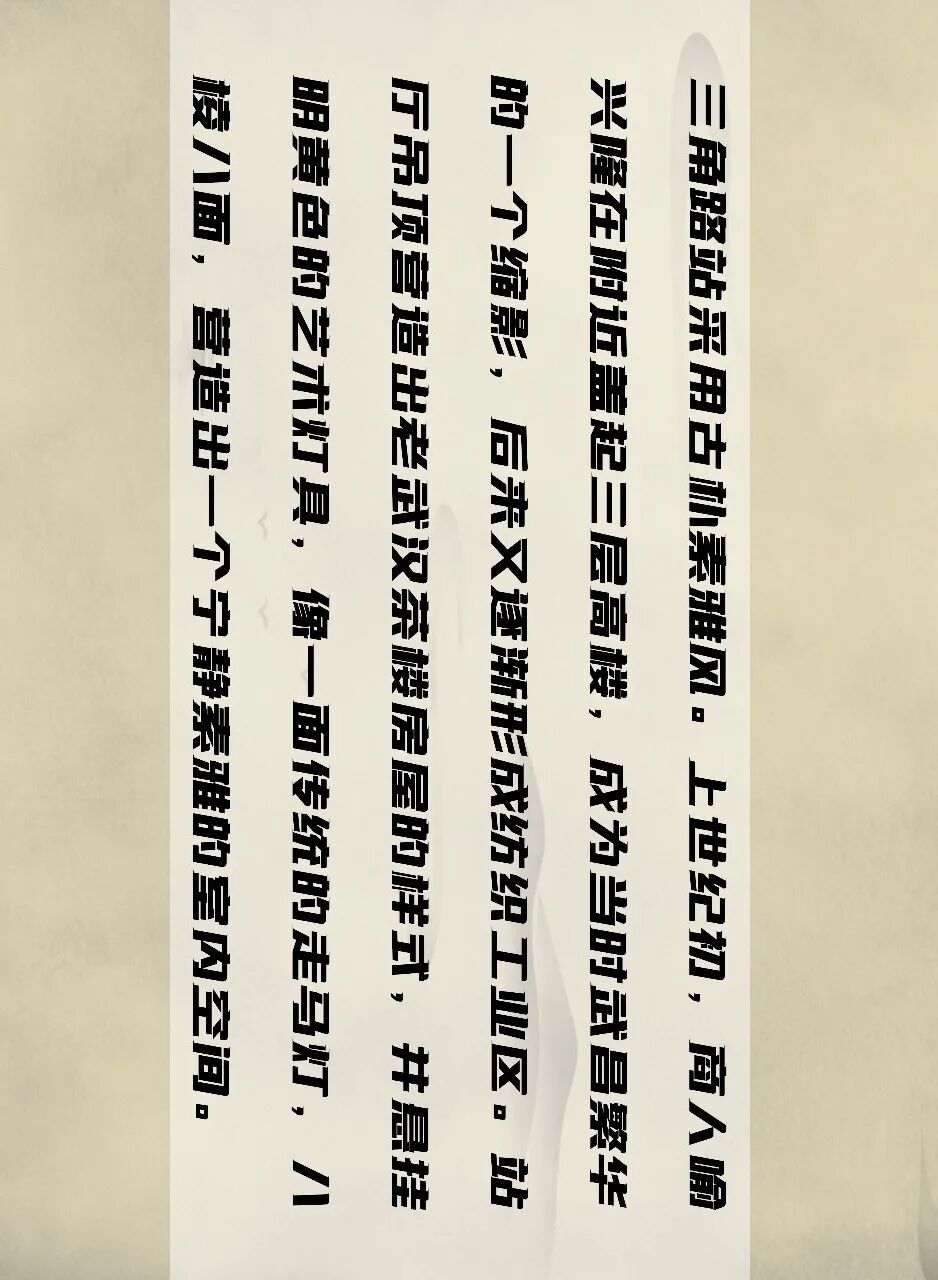 三角路站采用古朴素雅风。上世纪初，商人喻
兴隆在附近盖起三层高楼，成为当时武昌繁华
的一个缩影，后来又逐渐形成纺织工业区。站
厅吊顶营造出老武汉茶楼房屋的样式，并悬挂
明黄色的艺术灯具，像一面传统的走马灯，八
棱八面，营造出一个宁静素雅的室内空间。